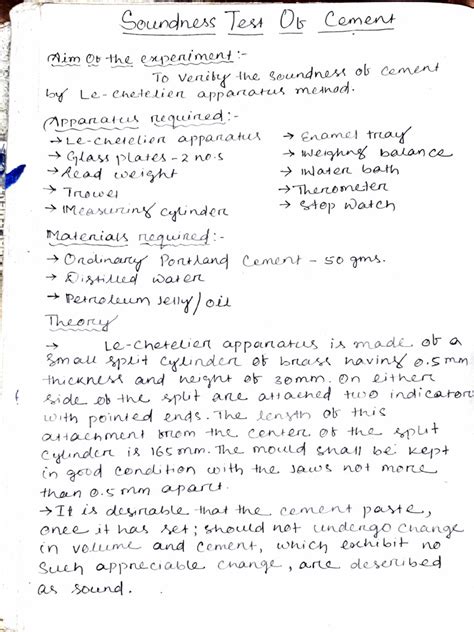 Soundness Test Of Cement
Aim Of the experiment:-
To verify the soundness of cement
by Le-chetelier apparatus method.
Apparatus required:-
→ Le-chetelier apparatus
→ Glass plates - 2 no.s
→ Lead weight
→ Trowel
→ Measuring cylinder
→ Enamel tray
→ Weighing balance
→ Water bath
→ Thermometer
→ Stop watch
Materials required:-
→ Ordinary Portland Cement - 50 gms.
→ Distilled water
→ Petroleum Jelly/oil
Theory
→ Le-chetelier apparatus is made of a
small split cylinder of brass having 0.5mm
thickness and height of 30mm. On either
side of the split are attached two indicators
with pointed ends. The length of this
attachment from the center of the split
cylinder is 165mm. The mould shall be kept
in good condition with the jaws not more
than 0.5mm apart.
→ It is desirable that the cement paste,
once it has set; should not undergo change
in volume and cement, which exhibit no
such appreciable change, are described
as sound.